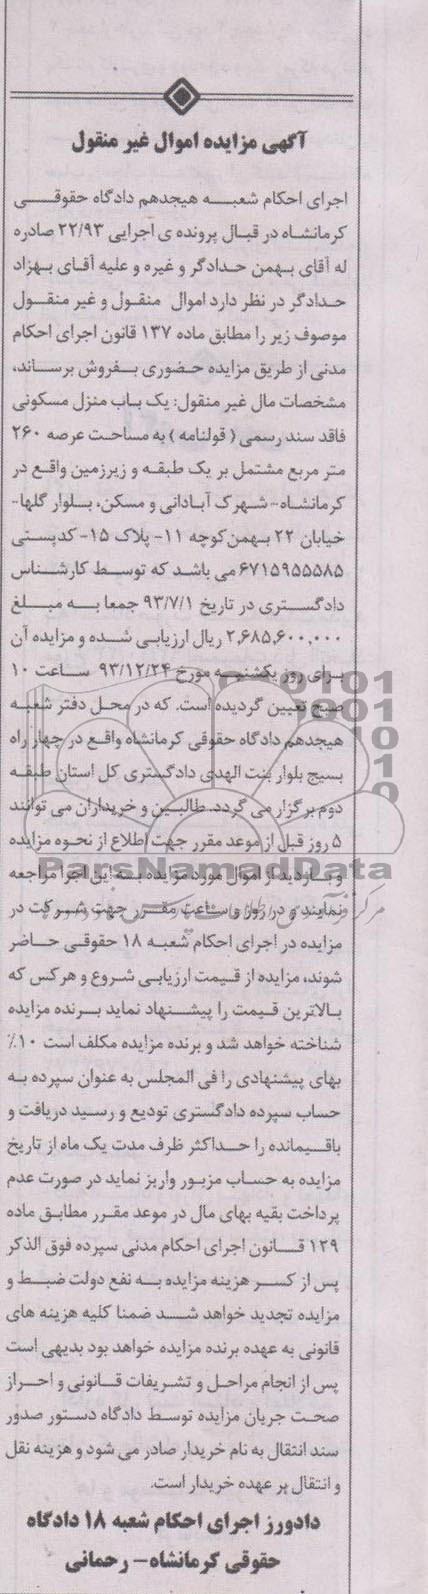 آگهی مزایده اموال غیر منقول
اجرای احکام شعبه هیجدهم دادگاه حقوقی
کرمانشاه در قبال پرونده ی اجرایی ۲۲/۹۳ صادره
له آقای بهمن حدادگر و غیره و علیه آقای بهزاد
حدادگر در نظر دارد اموال منقول و غیر منقول
موصوف زیر را مطابق ماده ۱۳۷ قانون اجرای احکام
مدنی از طریق مزایده حضوری بفروش برساند،
مشخصات مال غیر منقول: یک باب منزل مسکونی
فاقد سند رسمی ( قولنامه ) به مساحت عرصه ۲۶۰
متر مربع مشتمل بر یک طبقه و زیرزمین واقع در
کرمانشاه- شهرک آبادانی و مسکن، بلوار گلها-
خیابان ۲۲ بهمن کوچه ۱۱- پلاک ۱۵- کدپستی
۶۷۱۵۹۵۵۵۸۵ می باشد که توسط کارشناس
دادگستری در تاریخ ۹۳/۷/۱ جمعا به مبلغ
۲,۶۸۵,۶۰۰,۰۰۰ ریال ارزیابی شده و مزایده آن
برای روز یکشنبه مورخ ۹۳/۱۲/۲۴ ساعت ۱۰
صبح تعیین گردیده است. که در محل دفتر شعبه
هیجدهم دادگاه حقوقی کرمانشاه واقع در چهار راه
بسیج بلوار بنت الهدی دادگستری کل استان طبقه
دوم برگزار می گردد. طالبین و خریداران می توانند
۵ روز قبل از موعد مقرر جهت اطلاع از نحوه مزایده
و بازدید از اموال مورد مزایده به این اجرا مراجعه
نمایند و در روز و ساعت مقرر جهت شرکت در
مزایده در اجرای احکام شعبه ۱۸ حقوقی حاضر
شوند، مزایده از قیمت ارزیابی شروع و هرکس که
بالاترین قیمت را پیشنهاد نماید برنده مزایده
شناخته خواهد شد و برنده مزایده مکلف است ۱۰٪
بهای پیشنهادی را فی المجلس به عنوان سپرده به
حساب سپرده دادگستری تودیع و رسید دریافت و
باقیمانده را حداکثر ظرف مدت یک ماه از تاریخ
مزایده به حساب مزبور واریز نماید در صورت عدم
پرداخت بقیه بهای مال در موعد مقرر مطابق ماده
۱۲۹ قانون اجرای احکام مدنی سپرده فوق الذکر
پس از کسر هزینه مزایده به نفع دولت ضبط و
مزایده تجدید خواهد شد ضمنا کلیه هزینه های
قانونی به عهده برنده مزایده خواهد بود بدیهی است
پس از انجام مراحل و تشریفات قانونی و احراز
صحت جریان مزایده توسط دادگاه دستور صدور
سند انتقال به نام خریدار صادر می شود و هزینه نقل
و انتقال بر عهده خریدار است.
دادورز اجرای احکام شعبه ۱۸ دادگاه
حقوقی کرمانشاه- رحمانی
ParsNamadData